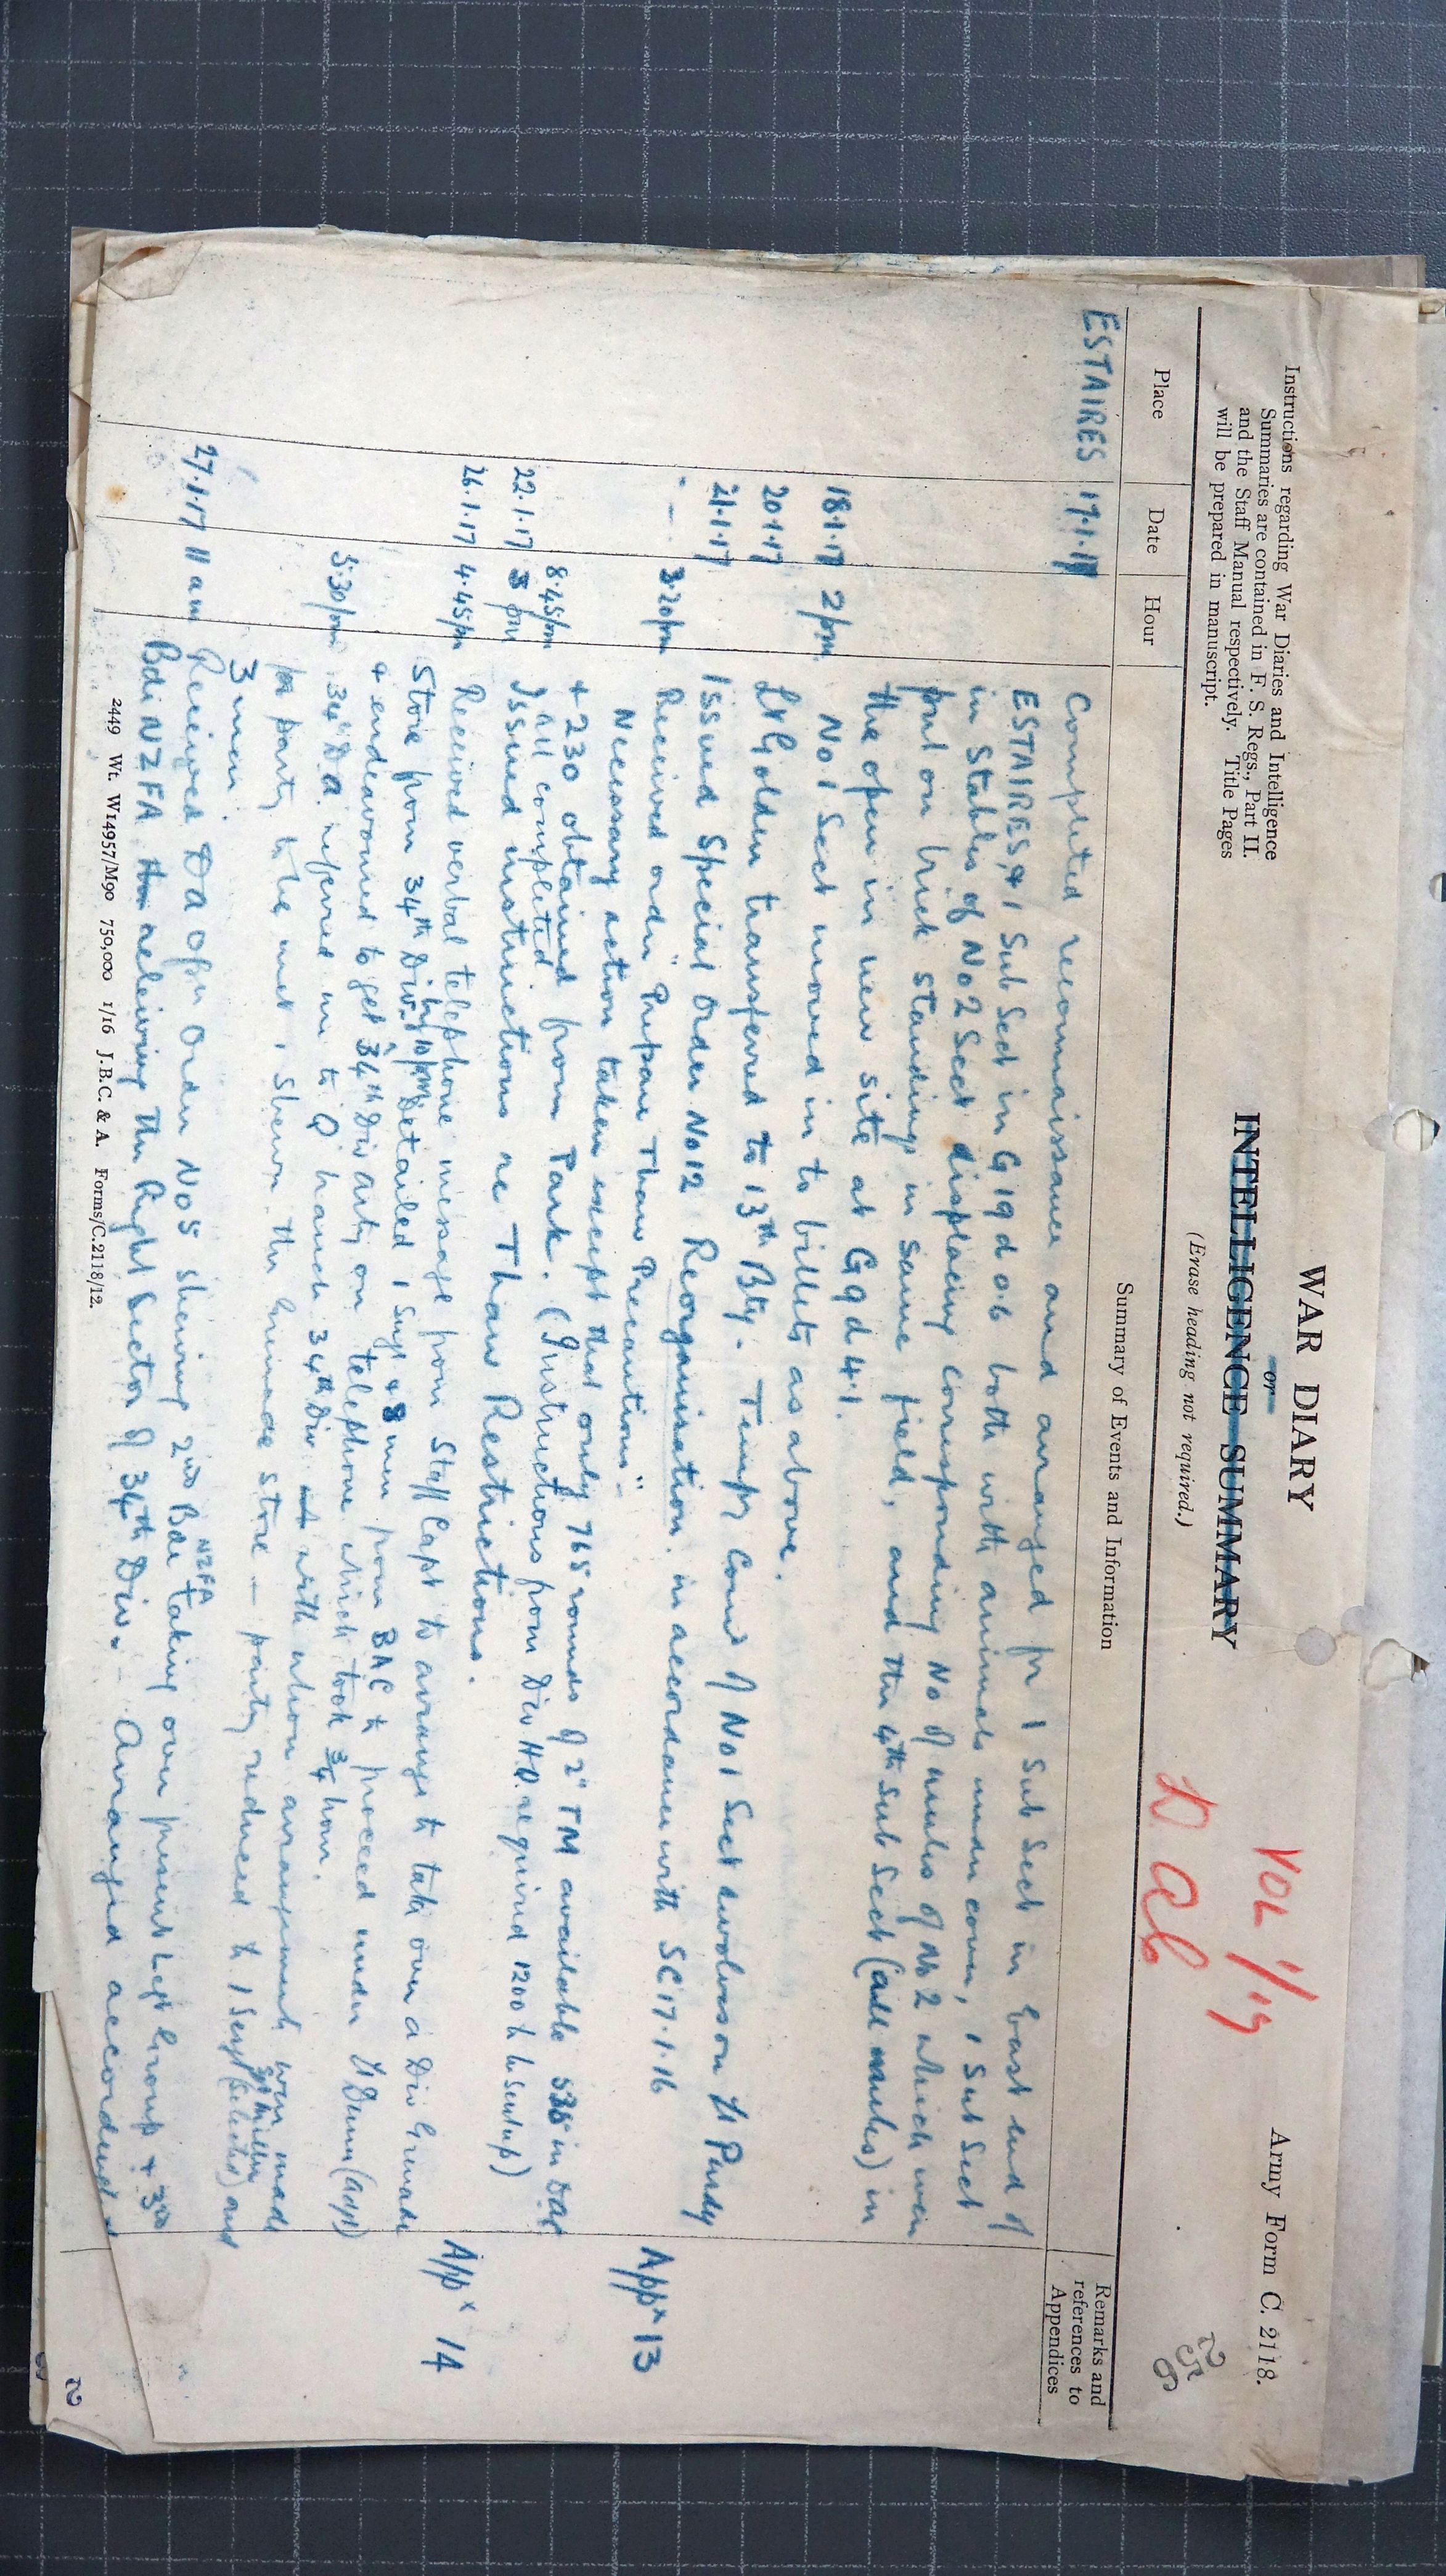 Army Form C. 2118.
WAR DIARY
or
INTELLIGENCE SUMMARY
(Erase heading not required.)
Instructions regarding War Diaries and Intelligence
Summaries are contained in F. S. Regs., Part II.
and the Staff Manual respectively. Title Pages
will be prepared in manuscript.
VOL
256
Place Date Hour Summary of Events and Information Remarks and references to Appendices
ESTAIRES 17.1.17 Completed reconnaissance and arranged for 1 Sub Sect in East end of
ESTAIRES, & 1 Sub Sect in G 19 d 0.6 both with animals under cover, 1 Sub Sect
in Stables of No 2 Sect displacing corresponding No of mules of No 2 which were
put on brick standings in same field, and the 4th Sub Sect (all mules) in
the open in new site at G 9 d 4.1.
18.1.17 2 pm No 1 Sect moved in to billets as above.
20.1.17 Lt Golden transferred to 13th Bty. Tempy Comd of No 1 Sect devolves on Lt Purdy
21.1.17 Issued Special Order No 12 Reorganisation. in accordance with SC 17.1.16 Appx 13
" — 3.20 pm Received order "Prepare Thaw Precautions"
Necessary action taken except that only 765 rounds of 2" TM available 535 in DAC
+ 230 obtained from Park. (Instructions from Div HQ. required 1200 to be sent up)
8.45 pm All completed.
22.1.17 3 pm Issued instructions re Thaw Restrictions. Appx 14
26.1.17 4.45 pm Received verbal telephone message from Staff Capt to arrange to take over a Div Grenade
Store from 34th Div. by 10 pm. Detailed 1 Sergt & 8 men from BAC to proceed under Lt Dunn (Adjt)
& endeavoured to get 34th Div Arty on telephone which took 3/4 hour.
5.30 pm 34 DA referred me to Q branch 34th Div with whom arrangements were made
for party to be met & shewn the Grenade store — party reduced to 1 Sergt and
3 men.
27.1.17 11 am Received DA Opn Order No 5 shewing 2nd Bde NZFA taking over present Left Group & 3rd
Bde NZFA relieving the Right Sector of 34th Div. — Arranged
2449 Wt. W14957/M90 750,000 1/16 J.B.C. & A. Forms/C.2118/12.